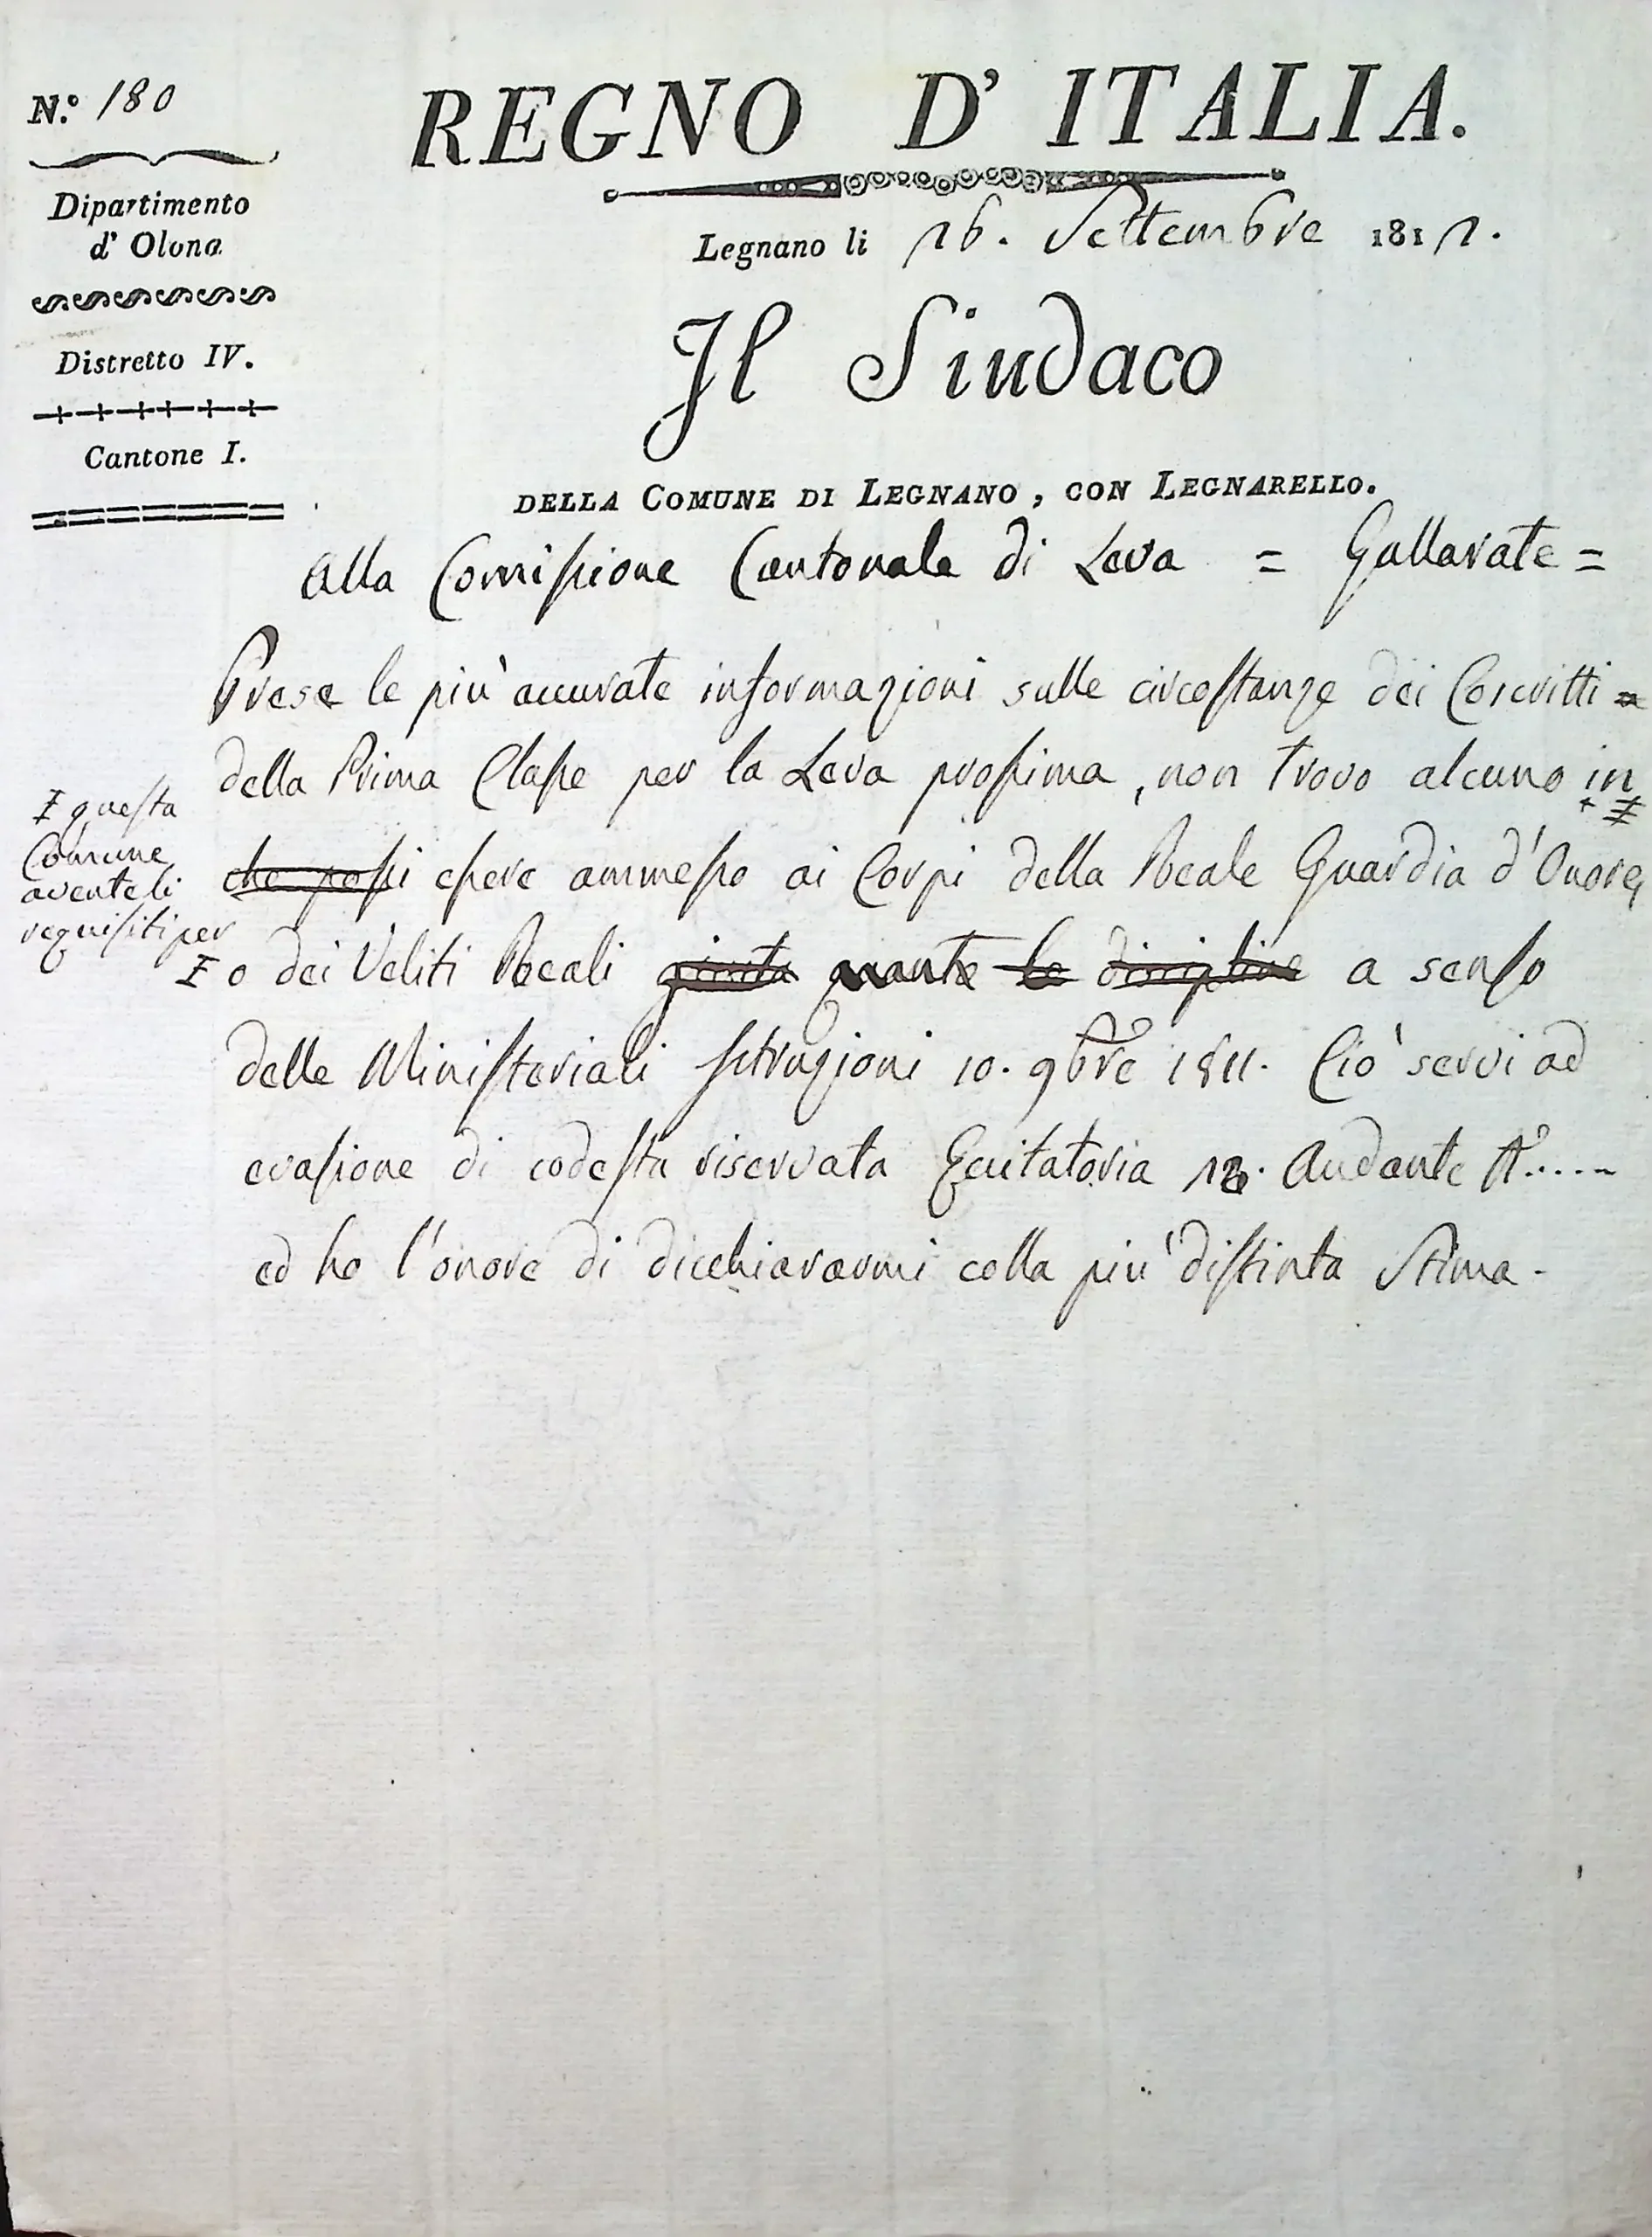 N.º 180
REGNO D' ITALIA.
Dipartimento
d' Olona
Legnano li 16. Settembre 1812.
Distretto IV.
Il Sindaco
Cantone I.
DELLA COMUNE DI LEGNANO, CON LEGNARELLO.
Alla Comissione Cantonale di Leva = Gallarate =
Prese le più accurate informazioni sulle circostanze dei Coscritti
della Prima Classe per la Leva prossima, non trovo alcuno in
questa
Comune
avente li
requisiti per
che possi essere ammesso ai Corpi della Reale Guardia d'Onore,
o dei Veliti Reali giusta le discipline a senso
delle Ministeriali Istruzioni 10. 9bre 1811. Ciò servi ad
evasione di codesta riservata Ecitatoria 13. Andante Nº.....
ed ho l'onore di dicchiararmi colla più distinta Stima.